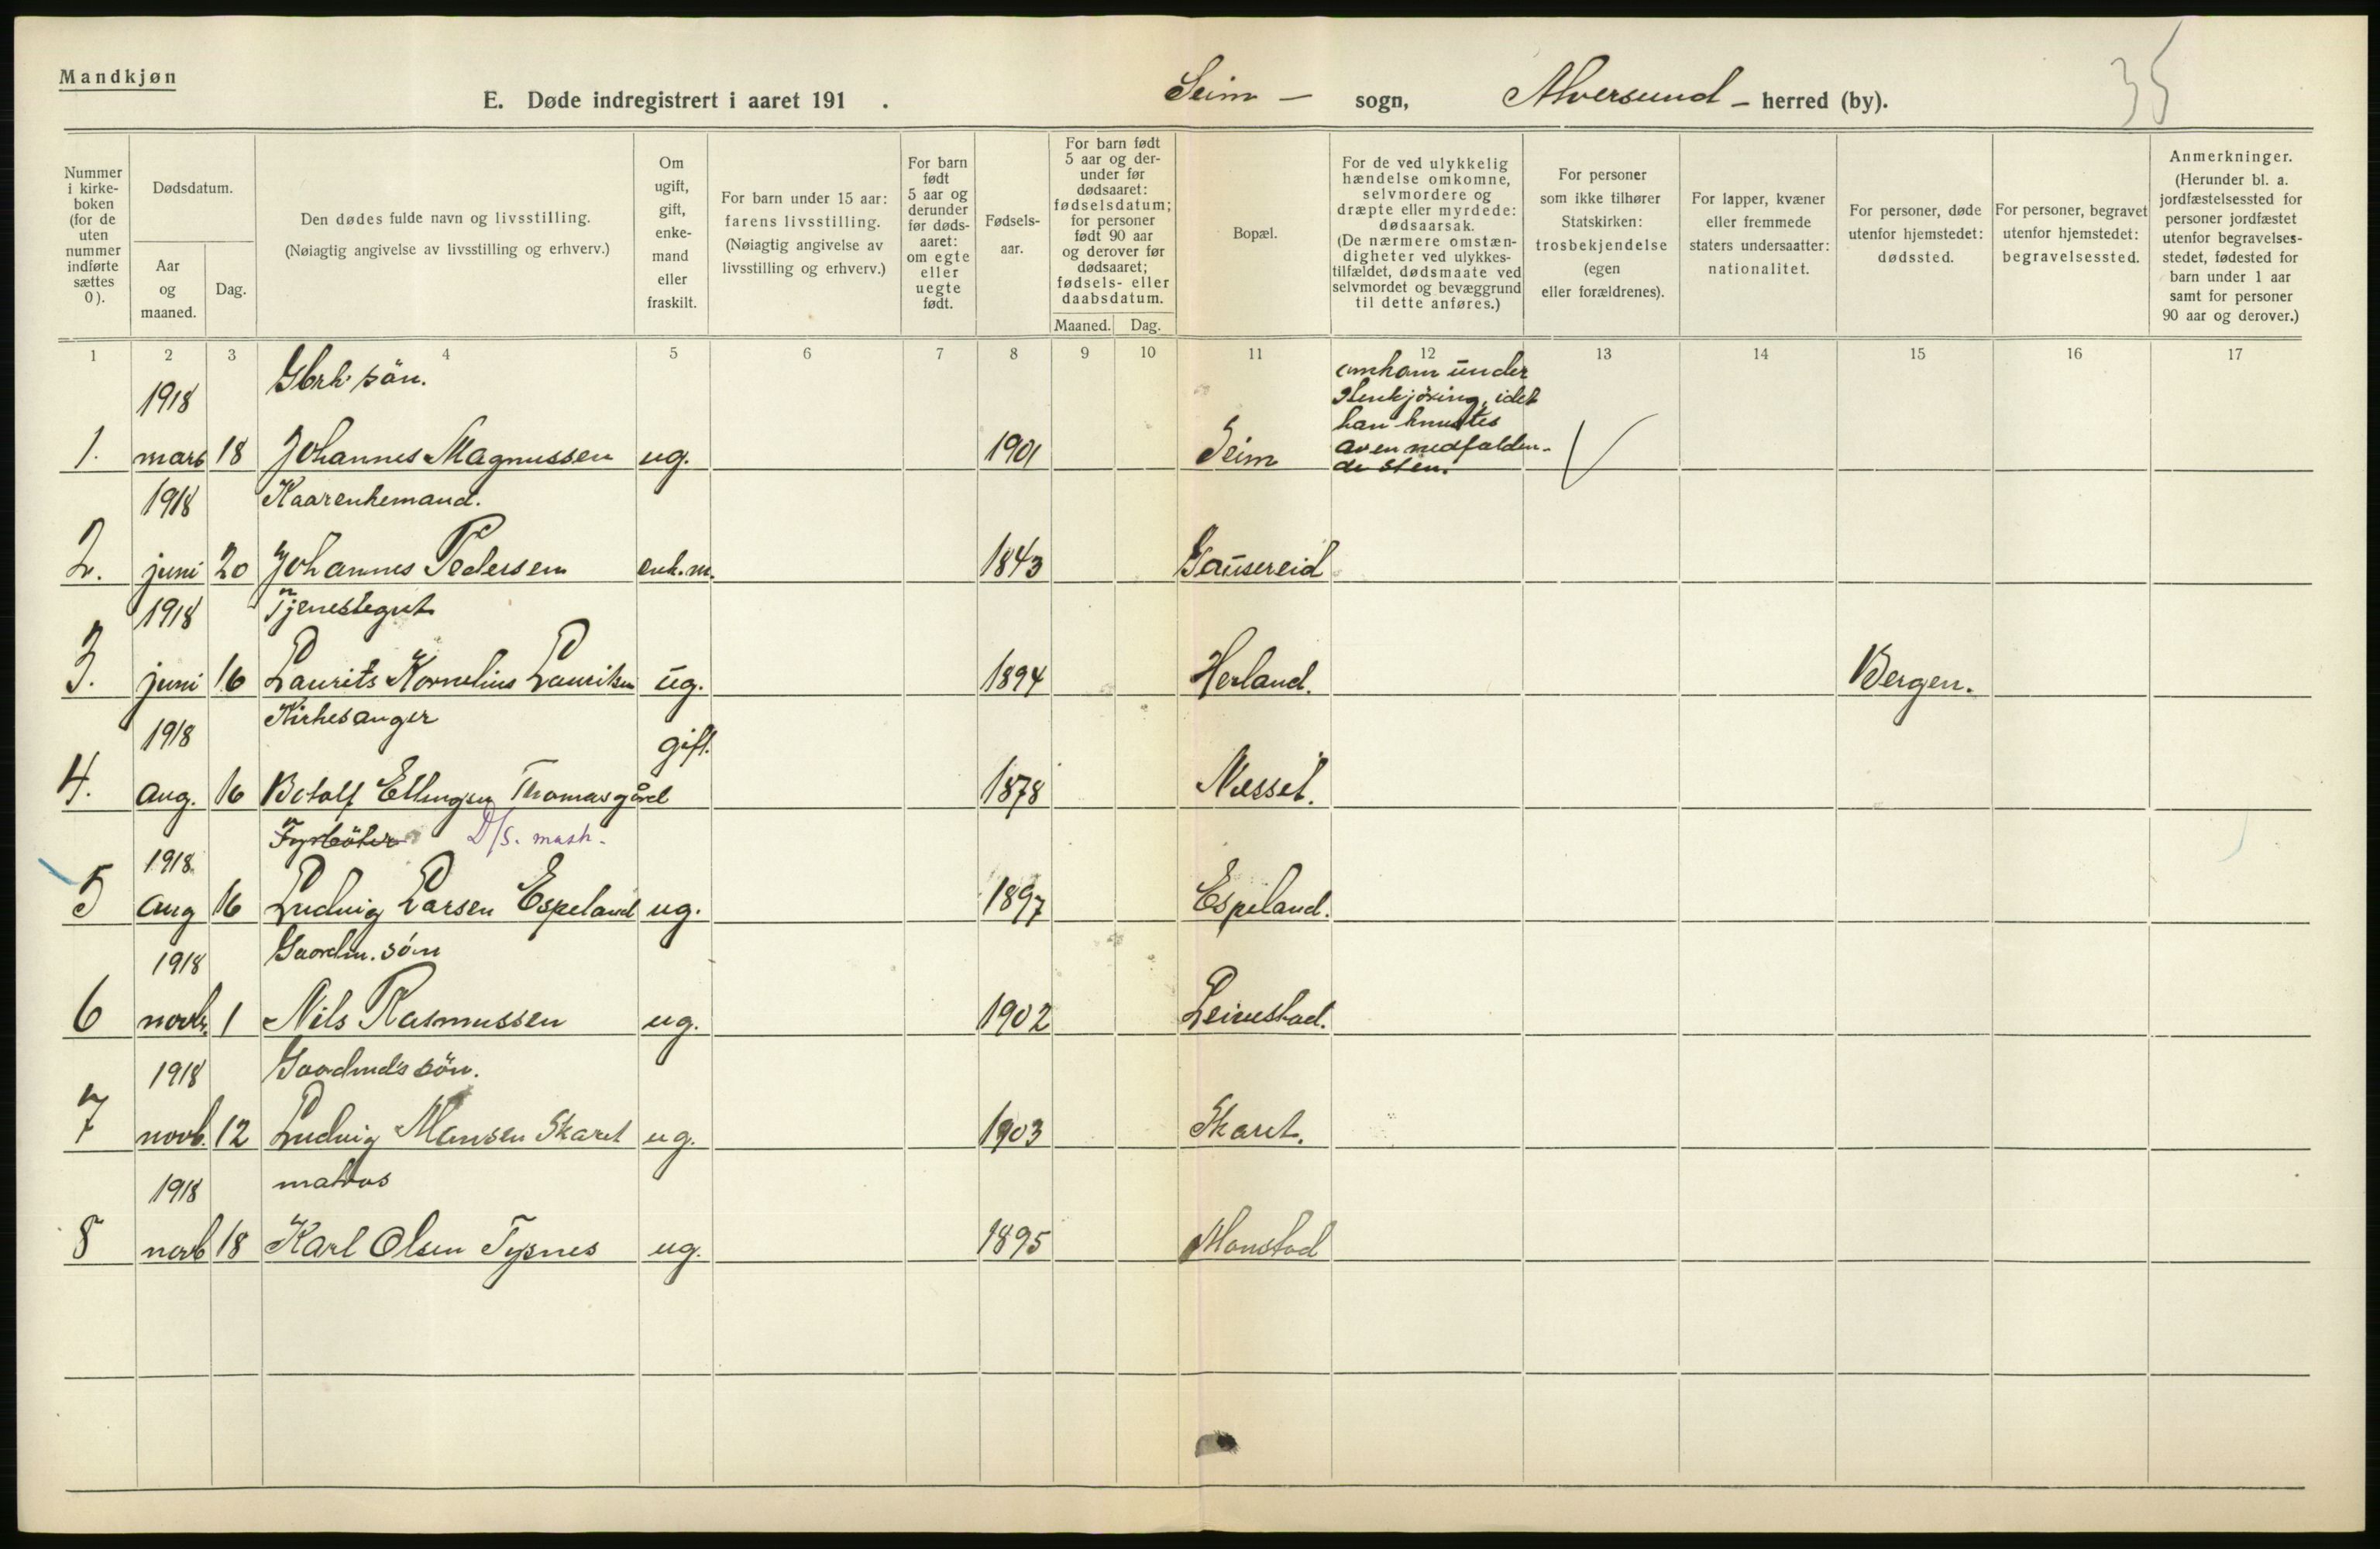 Mandkjøn
E. Døde indregistrert i aaret 191 .
Seim – sogn, Alversund – herred (by).
35
Nummer i kirke-boken (for de uten nummer indførte sættes 0).
Dødsdatum.
Aar og maaned.
Dag.
Den dødes fulde navn og livsstilling.
(Nøiagtig angivelse av livsstilling og erhverv.)
Om ugift, gift, enke-mand eller fraskilt.
For barn under 15 aar: farens livsstilling.
(Nøiagtig angivelse av livsstilling og erhverv.)
For barn født 5 aar og derunder før døds-aaret: om egte eller uegte født.
Fødsels-aar.
For barn født 5 aar og der-under før dødsaaret: fødselsdatum; for personer født 90 aar og derover før dødsaaret; fødsels- eller daabsdatum.
Maaned. Dag.
Bopæl.
For de ved ulykkelig hændelse omkomne, selvmordere og dræpte eller myrdede: dødsaarsak.
(De nærmere omstæn-digheter ved ulykkes-tilfældet, dødsmaate ved selvmordet og bevæggrund til dette anføres.)
For personer som ikke tilhører Statskirken: trosbekjendelse (egen eller forældrenes).
For lapper, kvæner eller fremmede staters undersaatter: nationalitet.
For personer, døde utenfor hjemstedet: dødssted.
For personer, begravet utenfor hjemstedet: begravelsessted.
Anmerkninger.
(Herunder bl. a. jordfæstelsessted for personer jordfæstet utenfor begravelses-stedet, fødested for barn under 1 aar samt for personer 90 aar og derover.)
1 2 3 4 5 6 7 8 9 10 11 12 13 14 15 16 17
1918 Gbrk. sön.
omkom under
stenkjöring, idet
han knustes
av en nedfalden-
de sten.
1. mars 18 Johannes Magnussen ug. 1901 Seim
1918 Kaarenkemand.
2. juni 20 Johannes Pedersen enk.m. 1843 Gausereid
1918 Tjenestegut
3. juni 16 Laurits Kornelius Lauritsen ug. 1894 Herland. Bergen.
1918 Kirkesanger gift.
4. aug. 16 Botolf Ellingsen Thomasgård 1878 Nesset.
1918 Fyrböter D/S. mask.
5 aug 16 Ludvig Larsen Espeland ug. 1897 Espeland.
1918 Gaardm. sön
6 novb. 1 Nils Rasmussen ug. 1902 Leirestad.
1918 Gaardmds sön.
7 novb. 12 Ludvig Monsen Skaret ug. 1903 Skaret.
1918 matros
8 novb 18 Karl Olsen Tysnes ug. 1895 Monstad